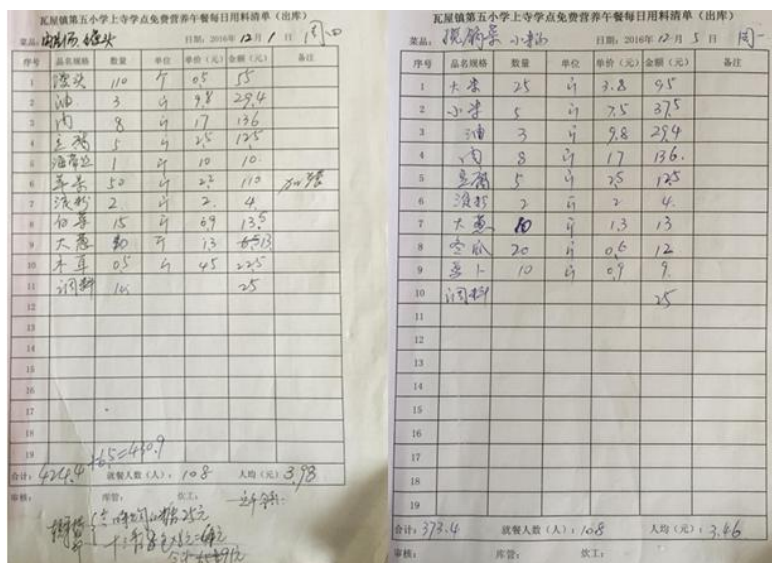 瓦屋镇第五小学上寺学点免费营养午餐每日用料清单（出库）
菜品： 日期：2016年12月1日 周四
序号 品名规格 数量 单位 单价（元） 金额（元） 备注
1 馒头 110 个 0.5 55
2 油 3 斤 9.8 29.4
3 肉 8 斤 17 136
4 豆腐 5 斤 2.5 12.5
5 海带丝 1 斤 10 10
6 苹果 50 斤 2.2 110 加餐
7 淀粉 2 斤 2 4
8 白菜 15 斤 0.9 13.5
9 大葱 10 斤 1.3 13
10 木耳 0.5 斤 45 22.5
11 调料 25
12
13
14
15
16
17
18
19
+6.5=430.9
合计：424.4 就餐人数（人）：108 人均（元）3.93
审核： 库管： 炊工：
瓦屋镇第五小学上寺学点免费营养午餐每日用料清单（出库）
菜品： 日期：2016年12月5日 周一
序号 品名规格 数量 单位 单价（元） 金额（元） 备注
1 大米 25 斤 3.8 95
2 小米 5 斤 7.5 37.5
3 油 3 斤 9.8 29.4
4 肉 8 斤 17 136
5 豆腐 5 斤 2.5 12.5
6 淀粉 2 斤 2 4
7 大葱 10 斤 1.3 13
8 冬瓜 20 斤 0.6 12
9 萝卜 10 斤 0.9 9
10 调料 25
11
12
13
14
15
16
17
18
19
合计：373.4 就餐人数（人）：108 人均（元）：3.46
审核： 库管： 炊工：